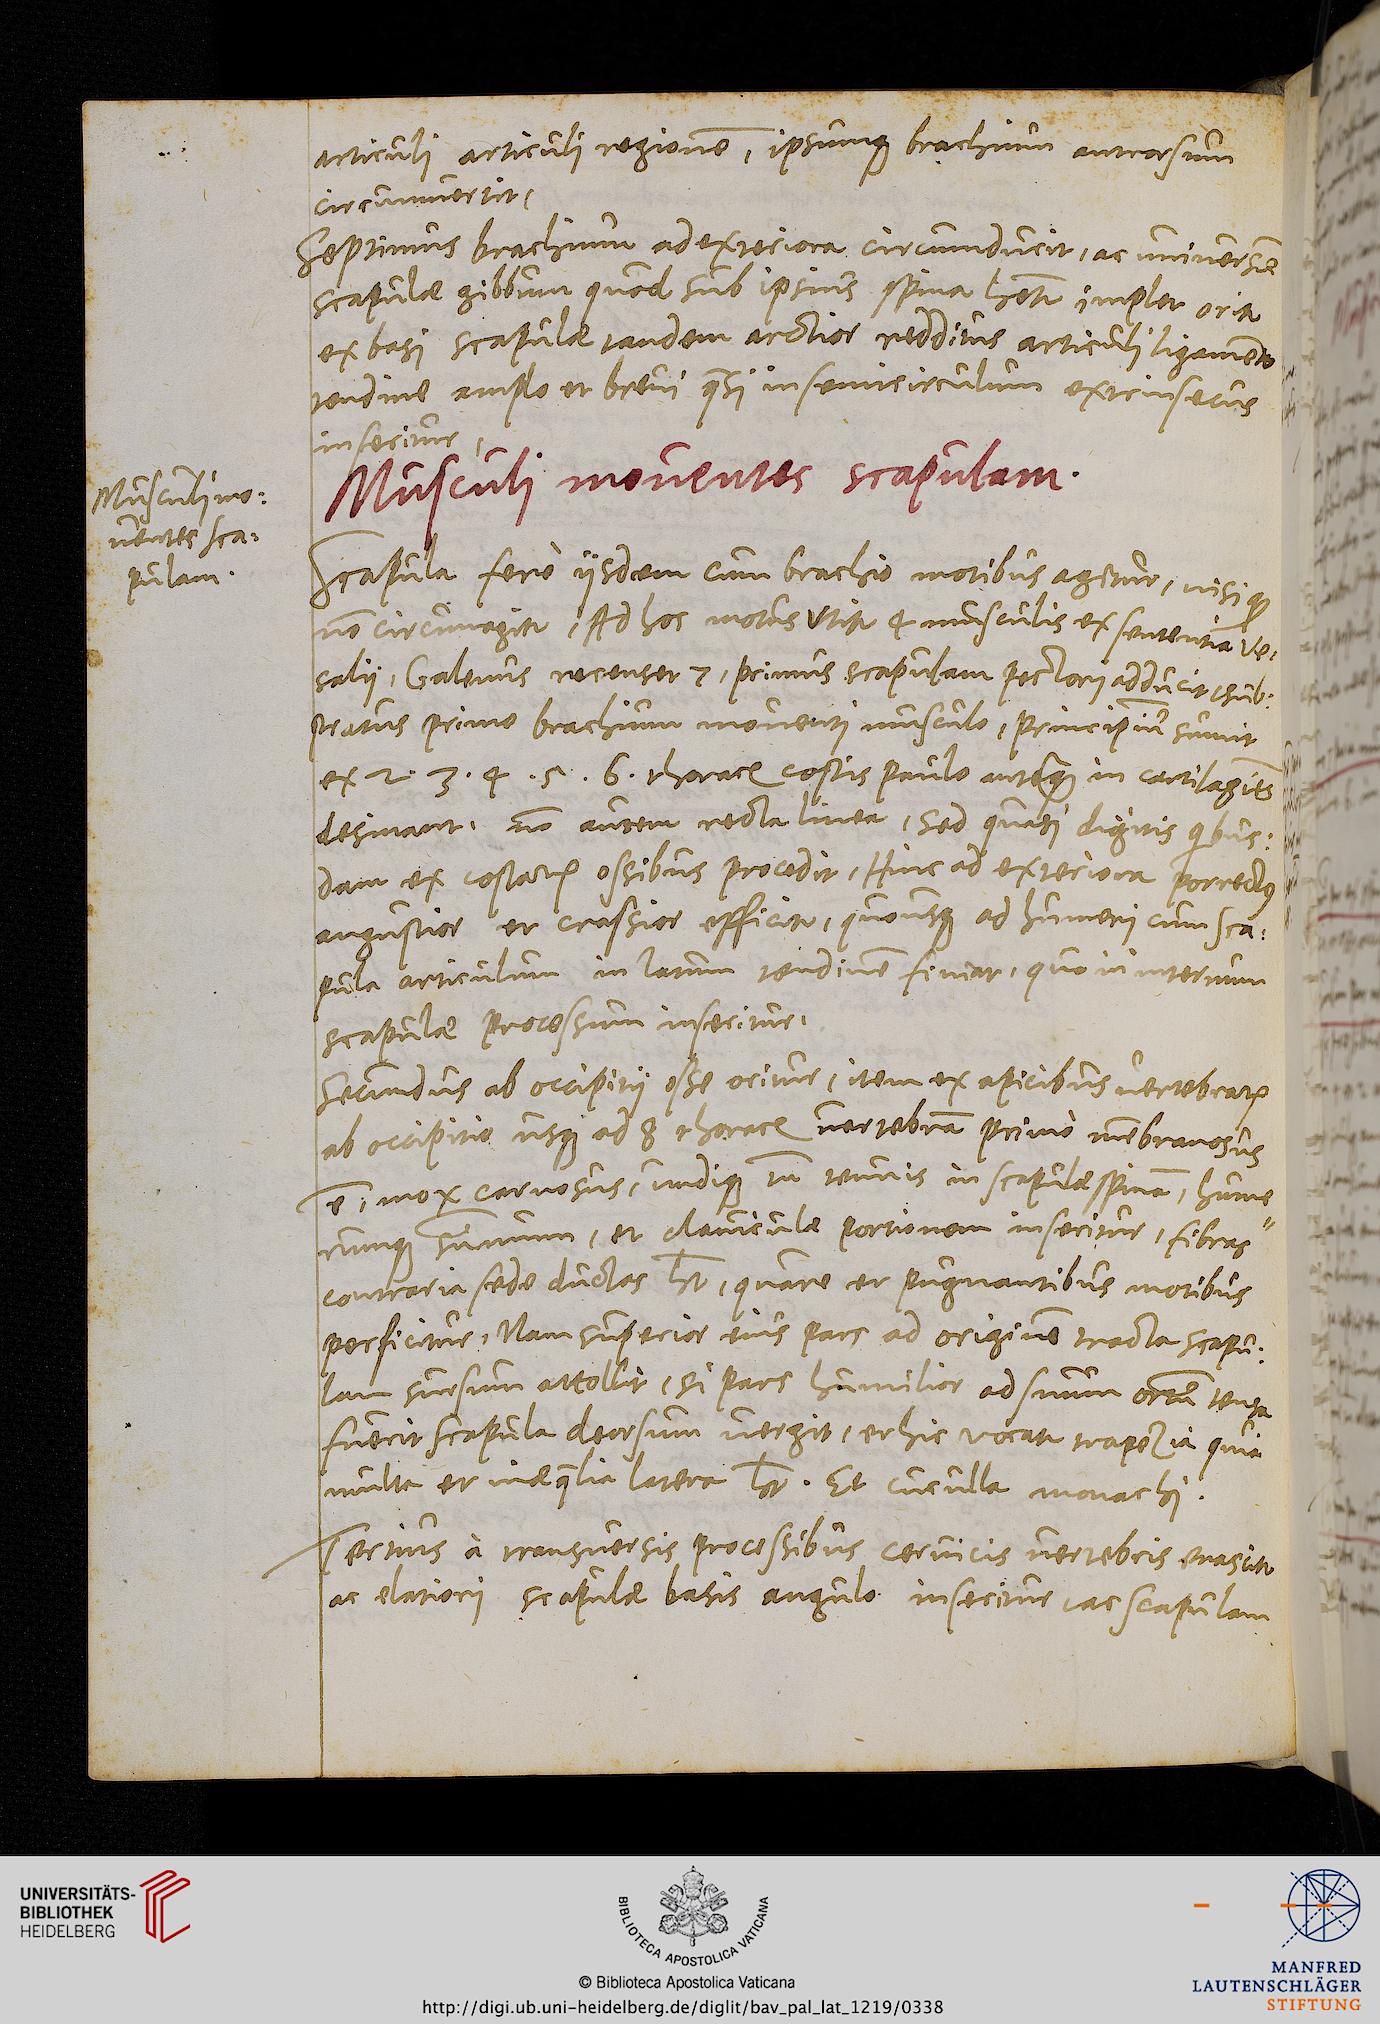 articuli articuli regionē, ipsumq; brachium antrorsum
circumuertit,
Septimus brachium ad exteriora circumducit, ac uniuersū
scapulæ gibbum quod sub ipsius spina hēt implet oritr
ex basi scapulæ tandem arctior redditus articuli ligamento
tendine amplo et breui q̄si in semicirculum extrinsecus
inseritur,
Musculi mouentes scapulam.
Musculi mo:
uentes sca:
pulam.
Scapula ferè ijsdem cum brachio motibus agitur, nisi qd
nō circūagitr, Ad hos motus Vtitr 4 musculis ex sententia Ve,
salij, Galenus recenset 7, primus scapulam pectorj adducit, sub:
stratus primo brachium mouenti musculo, principiū sumit
ex 2. 3. 4. 5. 6. thoracꝭ costis paulo anteq; in cartilaginēs
desinant, nō autem recta linea, sed quasi digitis qbus:
dam ex costarꝝ ossibus procedit, Hinc ad exteriora porrectꝰ
angustior et crassior efficitr, quousq; ad humerj cum sca:
pula articulum in latum tendinē finiat, quo in internum
scapulæ processum inseritur,
Secundus ab occipitij osse oritur, item ex apicibus uertebrarꝝ
ab occipitio usq; ad 8 thoracꝭ uertebrā primò mēbranosus
ē, mox carnosus, undiq; tn̄ tenuis in scapulæ spinā, hume
rumq; sūmum, et clauiculæ portionem inseritur, fibras
contraria sede ductas hēt, quare et pugnantibus motibus
perficitur, Nam superior eius pars ad originē tracta scapu:
lam sursum attollit, si pars humilior ad suum ortū tensa
fuerit scapula deorsum uergit, et hic vocatr trapezia quia
multa et inæq̄lia latera hēt. Et cuculla monachj.
Tertius à transuersis processibus ceruicis uertebris enascitr
ac elatiorj scapulæ basis angulo inseritur, ac scapulam
UNIVERSITÄTS-
BIBLIOTHEK
HEIDELBERG
BIBLIOTECA APOSTOLICA VATICANA
© Biblioteca Apostolica Vaticana
http://digi.ub.uni-heidelberg.de/diglit/bav_pal_lat_1219/0338
MANFRED
LAUTENSCHLÄGER
STIFTUNG